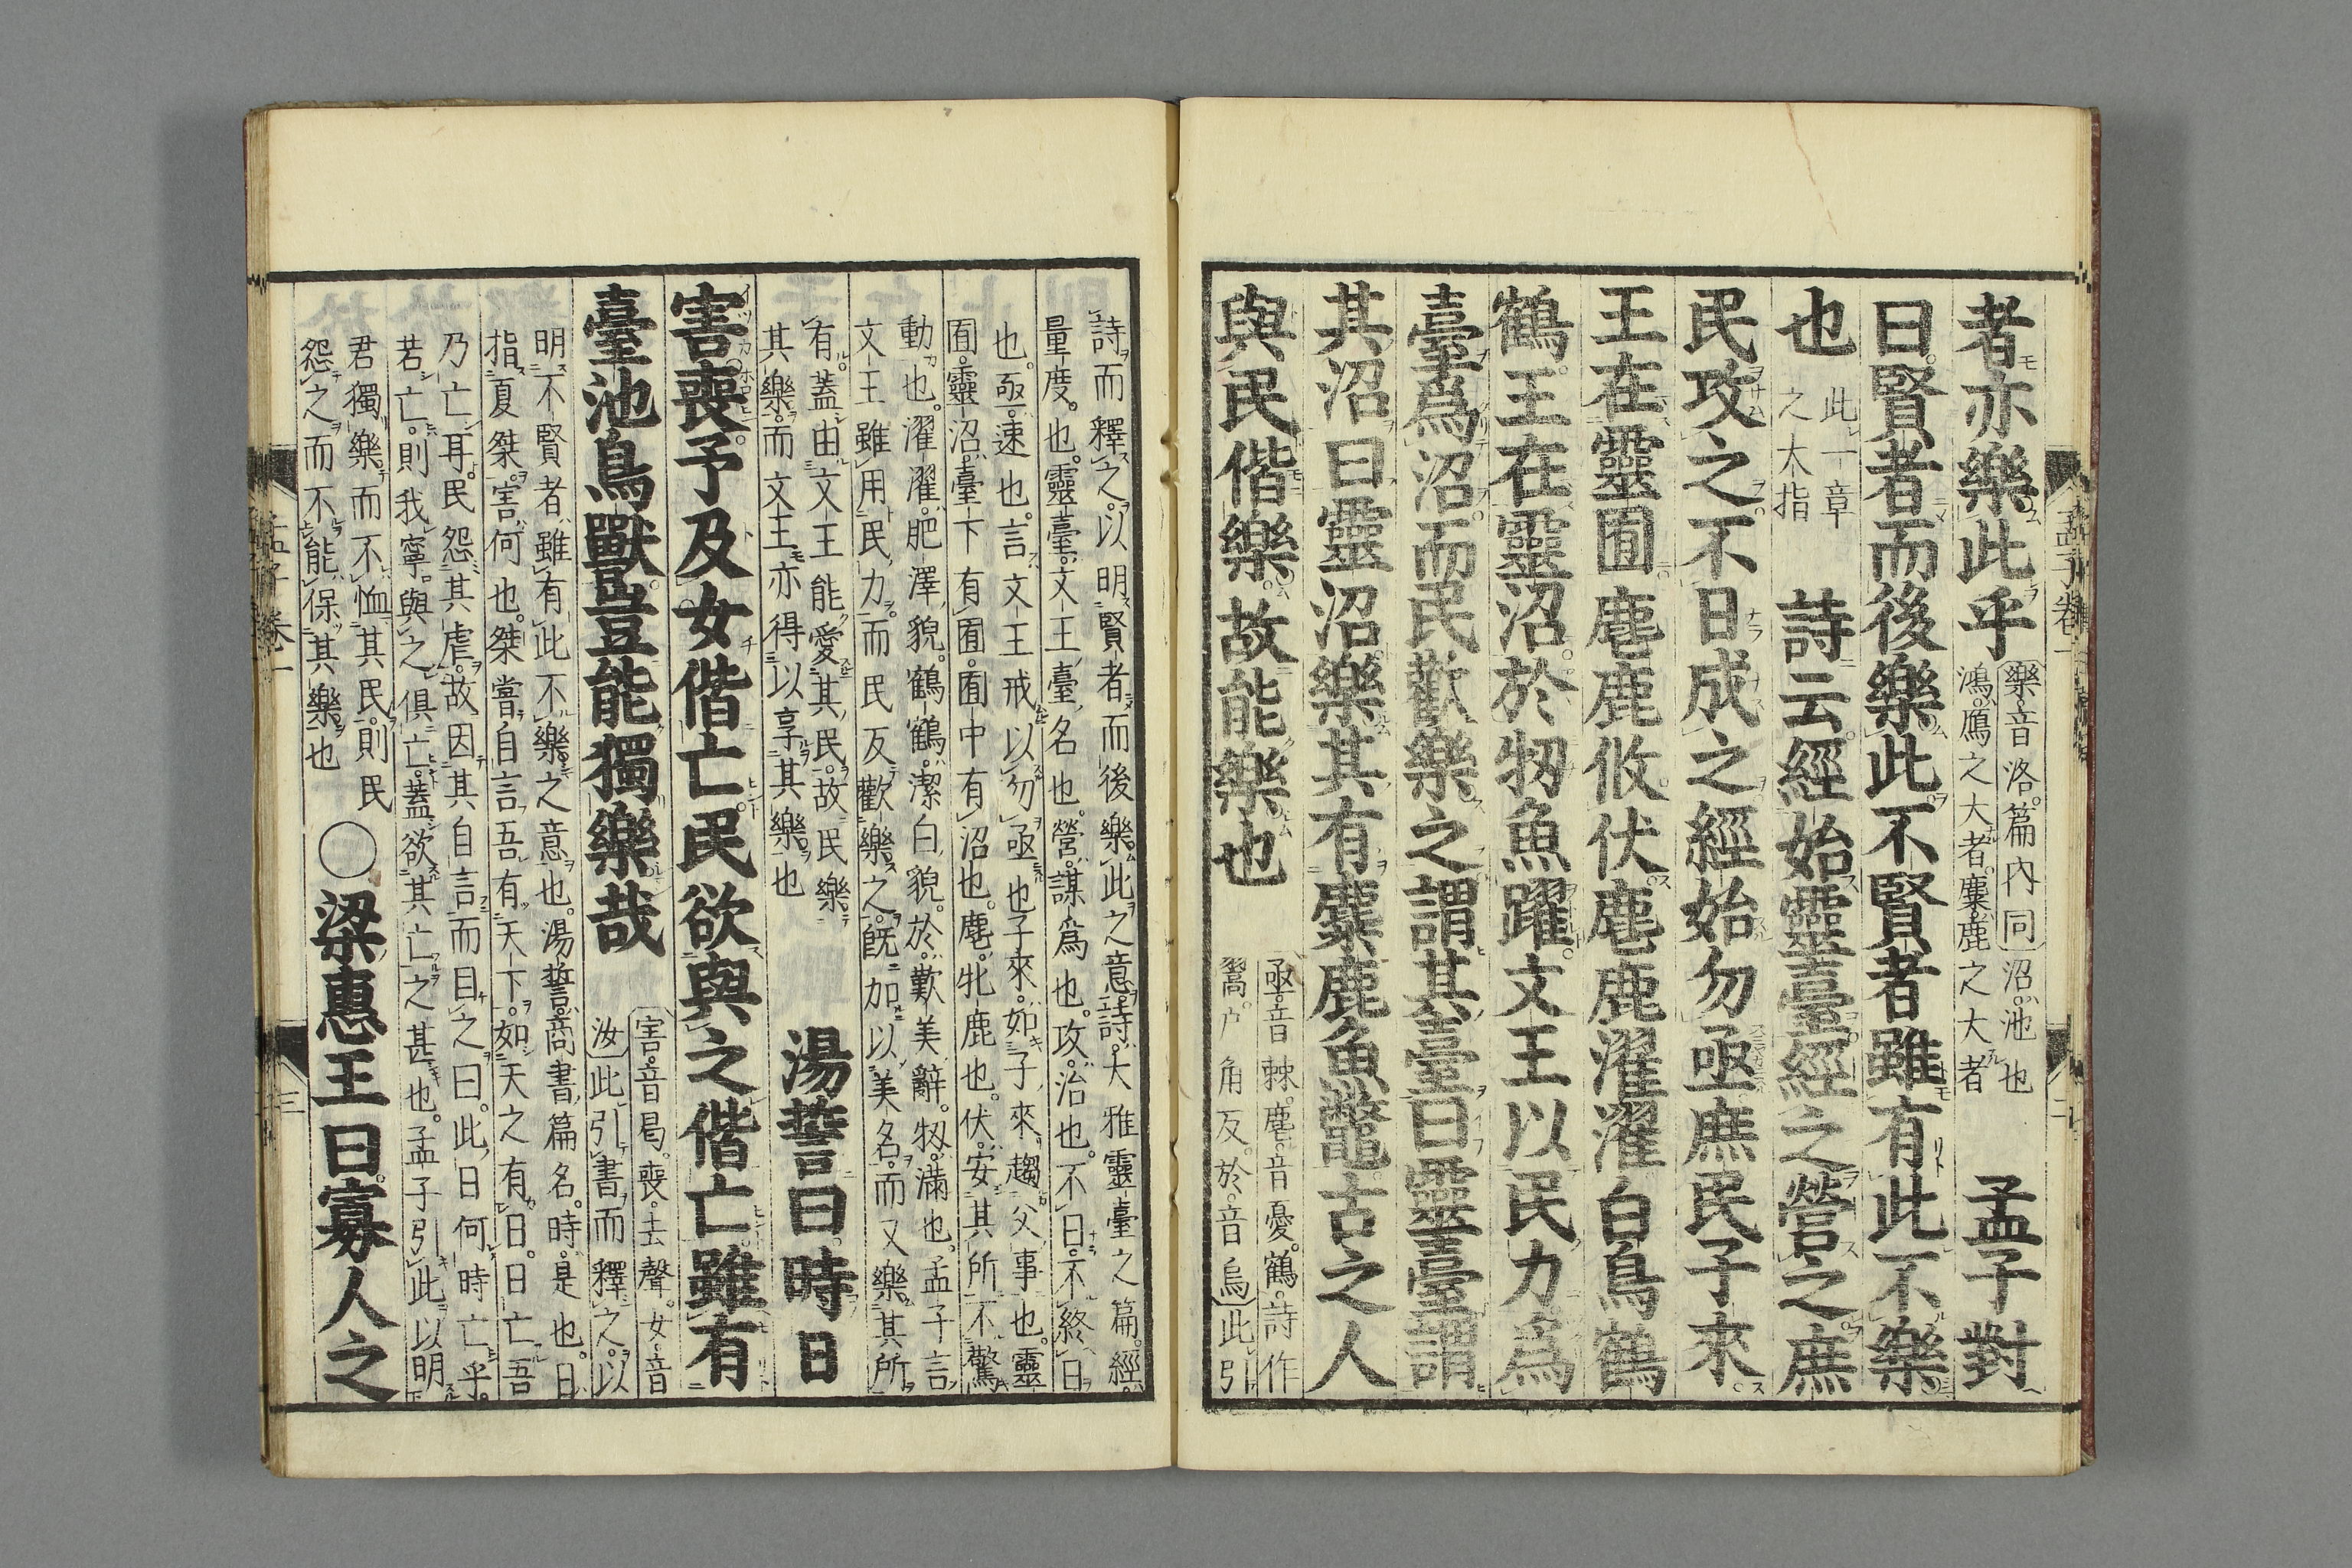 者亦樂此乎 樂音洛篇内同 沼池也
鴻鴈之大者麋鹿之大者 孟子對
曰賢者而後樂此不賢者雖有此不樂
也 此一章
之大指 詩云經始靈臺經之營之庶
民攻之不日成之經始勿亟庶民子來
王在靈囿麀鹿攸伏麀鹿濯濯白鳥鶴
鶴王在靈沼於牣魚躍文王以民力爲
臺爲沼而民歡樂之謂其臺曰靈臺謂
其沼曰靈沼樂其有麋鹿魚鼈古之人
與民偕樂故能樂也 亟音棘麀音憂鶴詩作
翯户角反於音烏此引
孟子卷一 二
詩而釋之以明賢者而後樂此之意詩大雅靈臺之篇經
量度也靈臺文王臺名也營謀爲也攻治也不日不終日
也亟速也言文王戒以勿亟也子來如子來趨父事也靈
囿靈沼臺下有囿囿中有沼也麀牝鹿也伏安其所不驚
動也濯濯肥澤貌鶴鶴潔白貌於歎美辭牣滿也孟子言
文王雖用民力而民反歡樂之既加以美名而又樂其所
有蓋由文王能愛其民故民樂
其樂而文王亦得以享其樂也 湯誓曰時日
害喪予及女偕亡民欲與之偕亡雖有
臺池鳥獸豈能獨樂哉 害音曷喪去聲女音
汝此引書而釋之以
明不賢者雖有此不樂之意也湯誓商書篇名時是也日
指夏桀害何也桀嘗自言吾有天下如天之有日日亡吾
乃亡耳民怨其虐故因其自言而目之曰此日何時亡乎
若亡則我寧與之俱亡蓋欲其亡之甚也孟子引此以明
君獨樂而不恤其民則民
怨之而不能保其樂也 ○梁惠王曰寡人之
孟子卷一 三